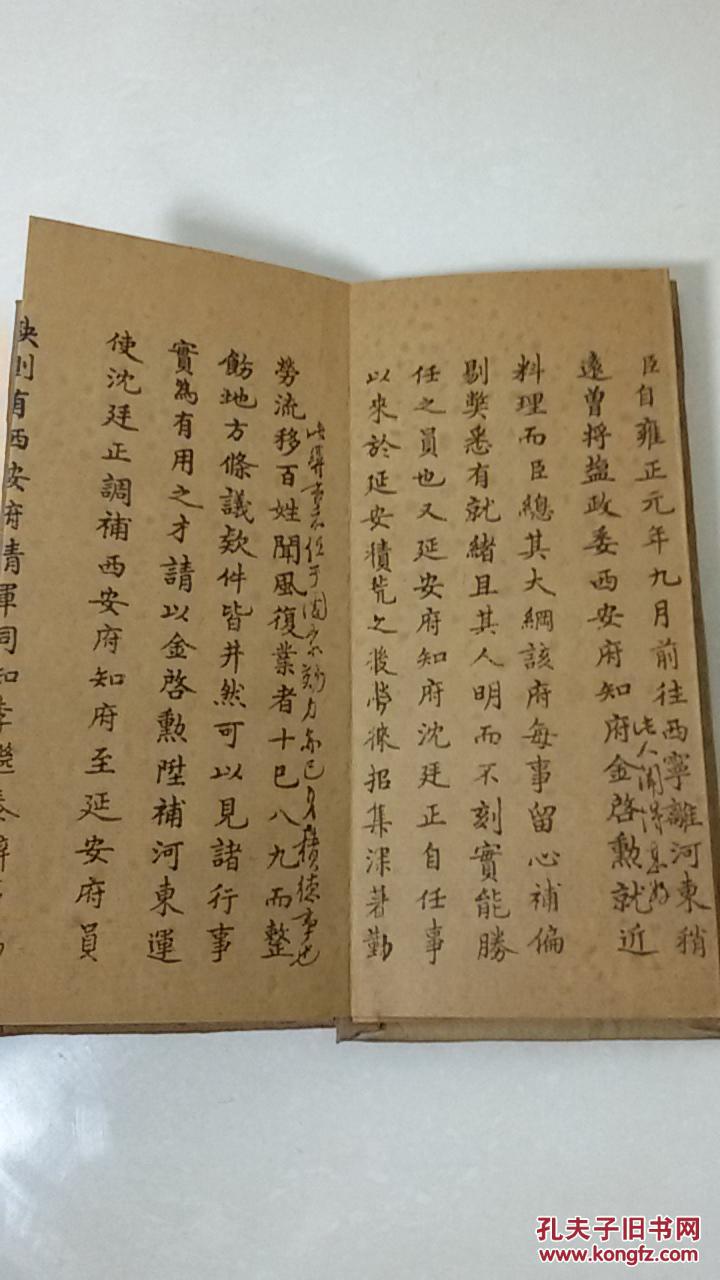 臣自雍正元年九月前往西寧離河東稍
遠曾將鹽政委西安府知府金啓勲就近
此人聞得甚好
料理而臣總其大綱該府每事留心補偏
剔獘悉有就緒且其人明而不刻實能勝
任之員也又延安府知府沈廷正自任事
以來於延安積荒之後勞徠招集深著勤
勞流移百姓聞風復業者十已八九而整
飭地方條議欵件皆井然可以見諸行事
實為有用之才請以金啓勲陞補河東運
使沈廷正調補西安府知府至延安府員
缺則有西安府清軍同知李繼泰
孔夫子旧书网
www.kongfz.com